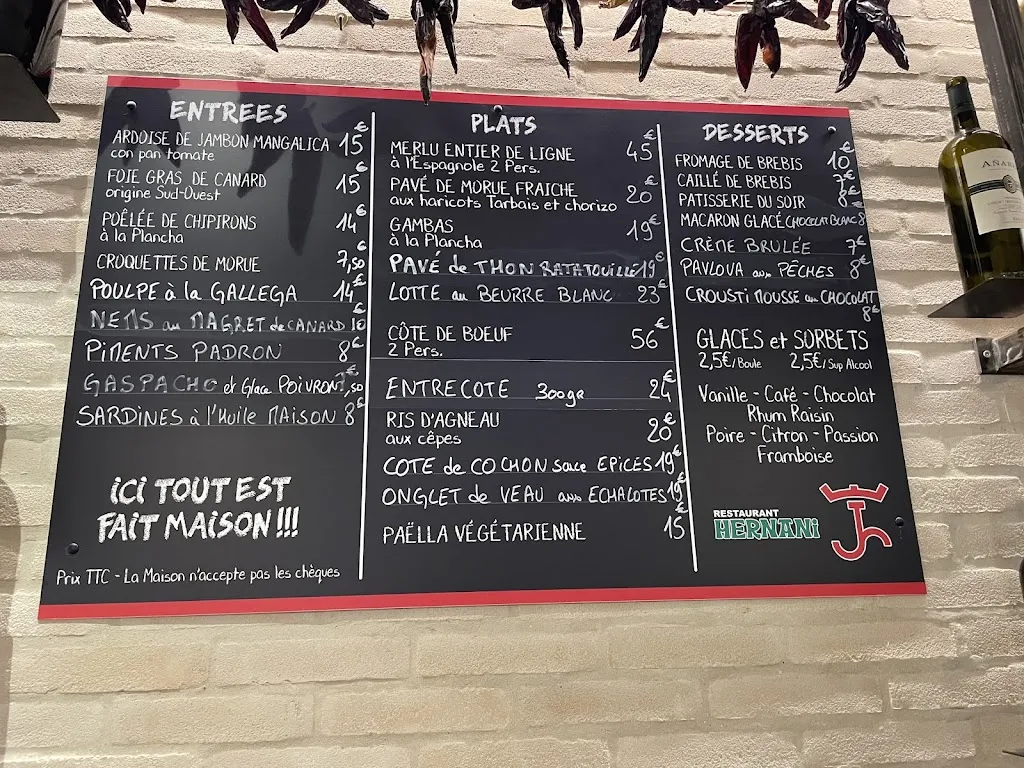 ENTREES
ARDOISE DE JAMBON MANGALICA 15€
con pan tomate
FOIE GRAS DE CANARD 15€
origine Sud-Ouest
POÊLÉE DE CHIPIRONS 14€
à la Plancha
CROQUETTES DE MORUE 7,50€
POULPE à la GALLEGA 14€
NEMS au MAGRET de CANARD 10
PIMENTS PADRON 8€
GASPACHO et Glace POIVRON 7,50€
SARDINES à l'Huile MAISON 8€
iCi TOUT EST
FAIT MAiSON !!!
Prix TTC - La Maison n'accepte pas les chèques
PLATS
MERLU ENTIER DE LIGNE 45€
à l'Espagnole 2 Pers.
PAVÉ DE MORUE FRAICHE 20€
aux haricots Tarbais et chorizo
GAMBAS 19€
à la Plancha
PAVÉ de THON RATATOUILLE 19€
LOTTE au BEURRE BLANC 23€
CÔTE DE BOEUF 56€
2 Pers.
ENTRECOTE 300gr 24€
RIS D'AGNEAU 20€
aux cêpes
COTE de COCHON sauce EPICES 19€
ONGLET de VEAU aux ECHALOTES 19€
PAËLLA VÉGÉTARIENNE 15€
DESSERTS
FROMAGE DE BREBIS 10€
CAILLÉ DE BREBIS 7€
PATISSERIE DU SOIR 8€
MACARON GLACÉ CHOCOLAT BLANC 8
CRÈME BRULÉE 7€
PAVLOVA aux PÊCHES 8€
CROUSTI MOUSSE au CHOCOLAT
8€
GLACES et SORBETS
2,5€/Boule 2,5€/Sup Alcool
Vanille - Café - Chocolat
Rhum Raisin
Poire - Citron - Passion
Framboise
RESTAURANT
HERNANi
Jh